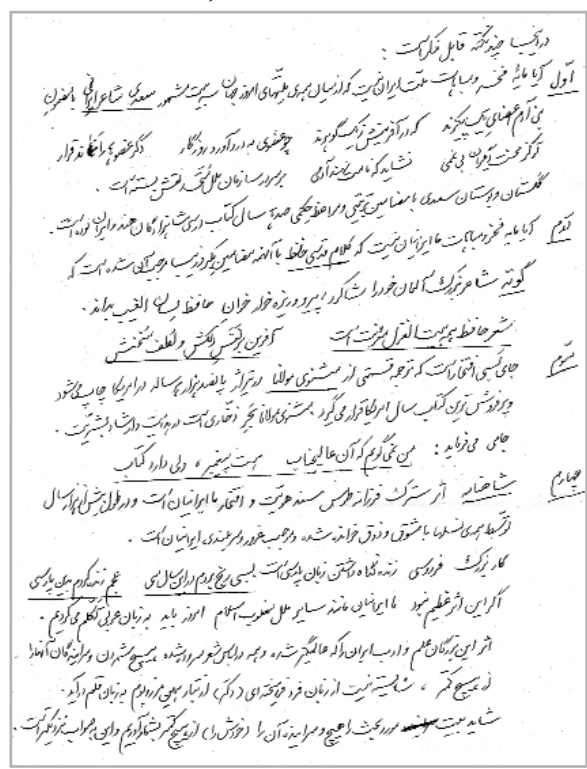 در اینجا چند نکته قابل فکر است :
اول آیا مایهٔ فخر و مباهات ملت ایران نیست که از میان همهٔ ملتهای امروز جهان بیت مشهور سعدی شاعر ایرانی
بنی آدم اعضای یکدیگرند که در آفرینش ز یک گوهرند چو عضوی به درد آورد روزگار دگر عضوها را نماند قرار
تو کز محنت دیگران بی غمی نشاید که نامت نهند آدمی بر سر در سازمان ملل متحد نقش بسته است .
گلستان و بوستان سعدی با مضامین تربیتی و مواعظ حکمی صدها سال کتاب درسی شاهزادگان هند و ایران بوده است .
دوم آیا مایه فخر و مباهات ما ایرانیان نیست که کلام قدسی حافظ با آنهمه مضامین بکر و زیبا موجب آن شده است که
گوته شاعر بزرگ آلمان خود را شاگرد، پیرو و ریزه خوار خوان حافظ لسان الغیب بداند .
شعر حافظ همه بیت الغزل معرفت است آفرین بر نفس دلکش و لطف سخنش
سوم جای بسی افتخار است که ترجمه قسمتی از مثنوی مولانا در تیراژ پانصد هزار رساله در امریکا چاپ میشود
و پرفروش ترین کتاب سال امریکا قرار می گیرد. مثنوی مولانا بحر ذخاری است در هدایت و ارشاد بشریت .
جامی می فرماید : من نمی گویم که آن عالیجناب هست پیغمبر ، ولی دارد کتاب
چهارم شاهنامه اثر سترگ فرزانه طوس سند هویت و افتخار ما ایرانیان است و در طول بیش از هزار سال
توسط همه نسلها با شوق و ذوق خوانده شده و موجب غرور و سربلندی ایرانیان است .
کار بزرگ فردوسی زنده نگاه داشتن زبان پارسی است بسی رنج بردم در این سال سی عجم زنده کردم بدین پارسی
اگر این اثر عظیم نبود ما ایرانیان مانند سایر ملل مغلوب اسلام امروز باید به زبان عربی تکلم می کردیم .
اثر این بزرگان علم و ادب ایران را که عالمگیر شده و همه در لباس شعر سروده شده هیچ شمردن و سرایندگان آنها را
از هیچ کمتر ، شایسته نیست از زبان فرد فرهیخته ای (دکتر) به زبان قلم درآید.
شاید بیت مورد بحث را هیچ و سراینده آن را (خودش را) از هیچ کمتر بشمار آوریم و این به صواب نزدیکتر است.